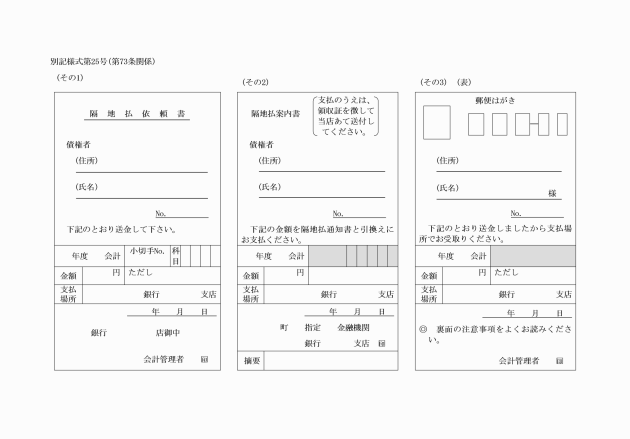 別記様式第25号(第73条関係)
(その1)
隔地払依頼書
債権者
(住所)
(氏名)
No.
下記のとおり送金して下さい。
年度 会計 小切手No. 科目
金額 円 ただし
支払場所 銀行 支店
年 月 日
銀行 店御中
会計管理者 印
(その2)
隔地払案内書
支払のうえは、
領収証を徴して
当店あて送付し
てください。
債権者
(住所)
(氏名)
No.
下記の金額を隔地払通知書と引換えに
お支払ください。
年度 会計
金額 円
支払場所 銀行 支店
年 月 日
町 指定 金融機関
銀行 支店 印
摘要
(その3) (表)
郵便はがき
(住所)
(氏名)
様
No.
下記のとおり送金しましたから支払場
所でお受取りください。
年度 会計
金額 円 ただし
支払場所 銀行 支店
年 月 日
◎ 裏面の注意事項をよくお読みくださ
い。
会計管理者 印